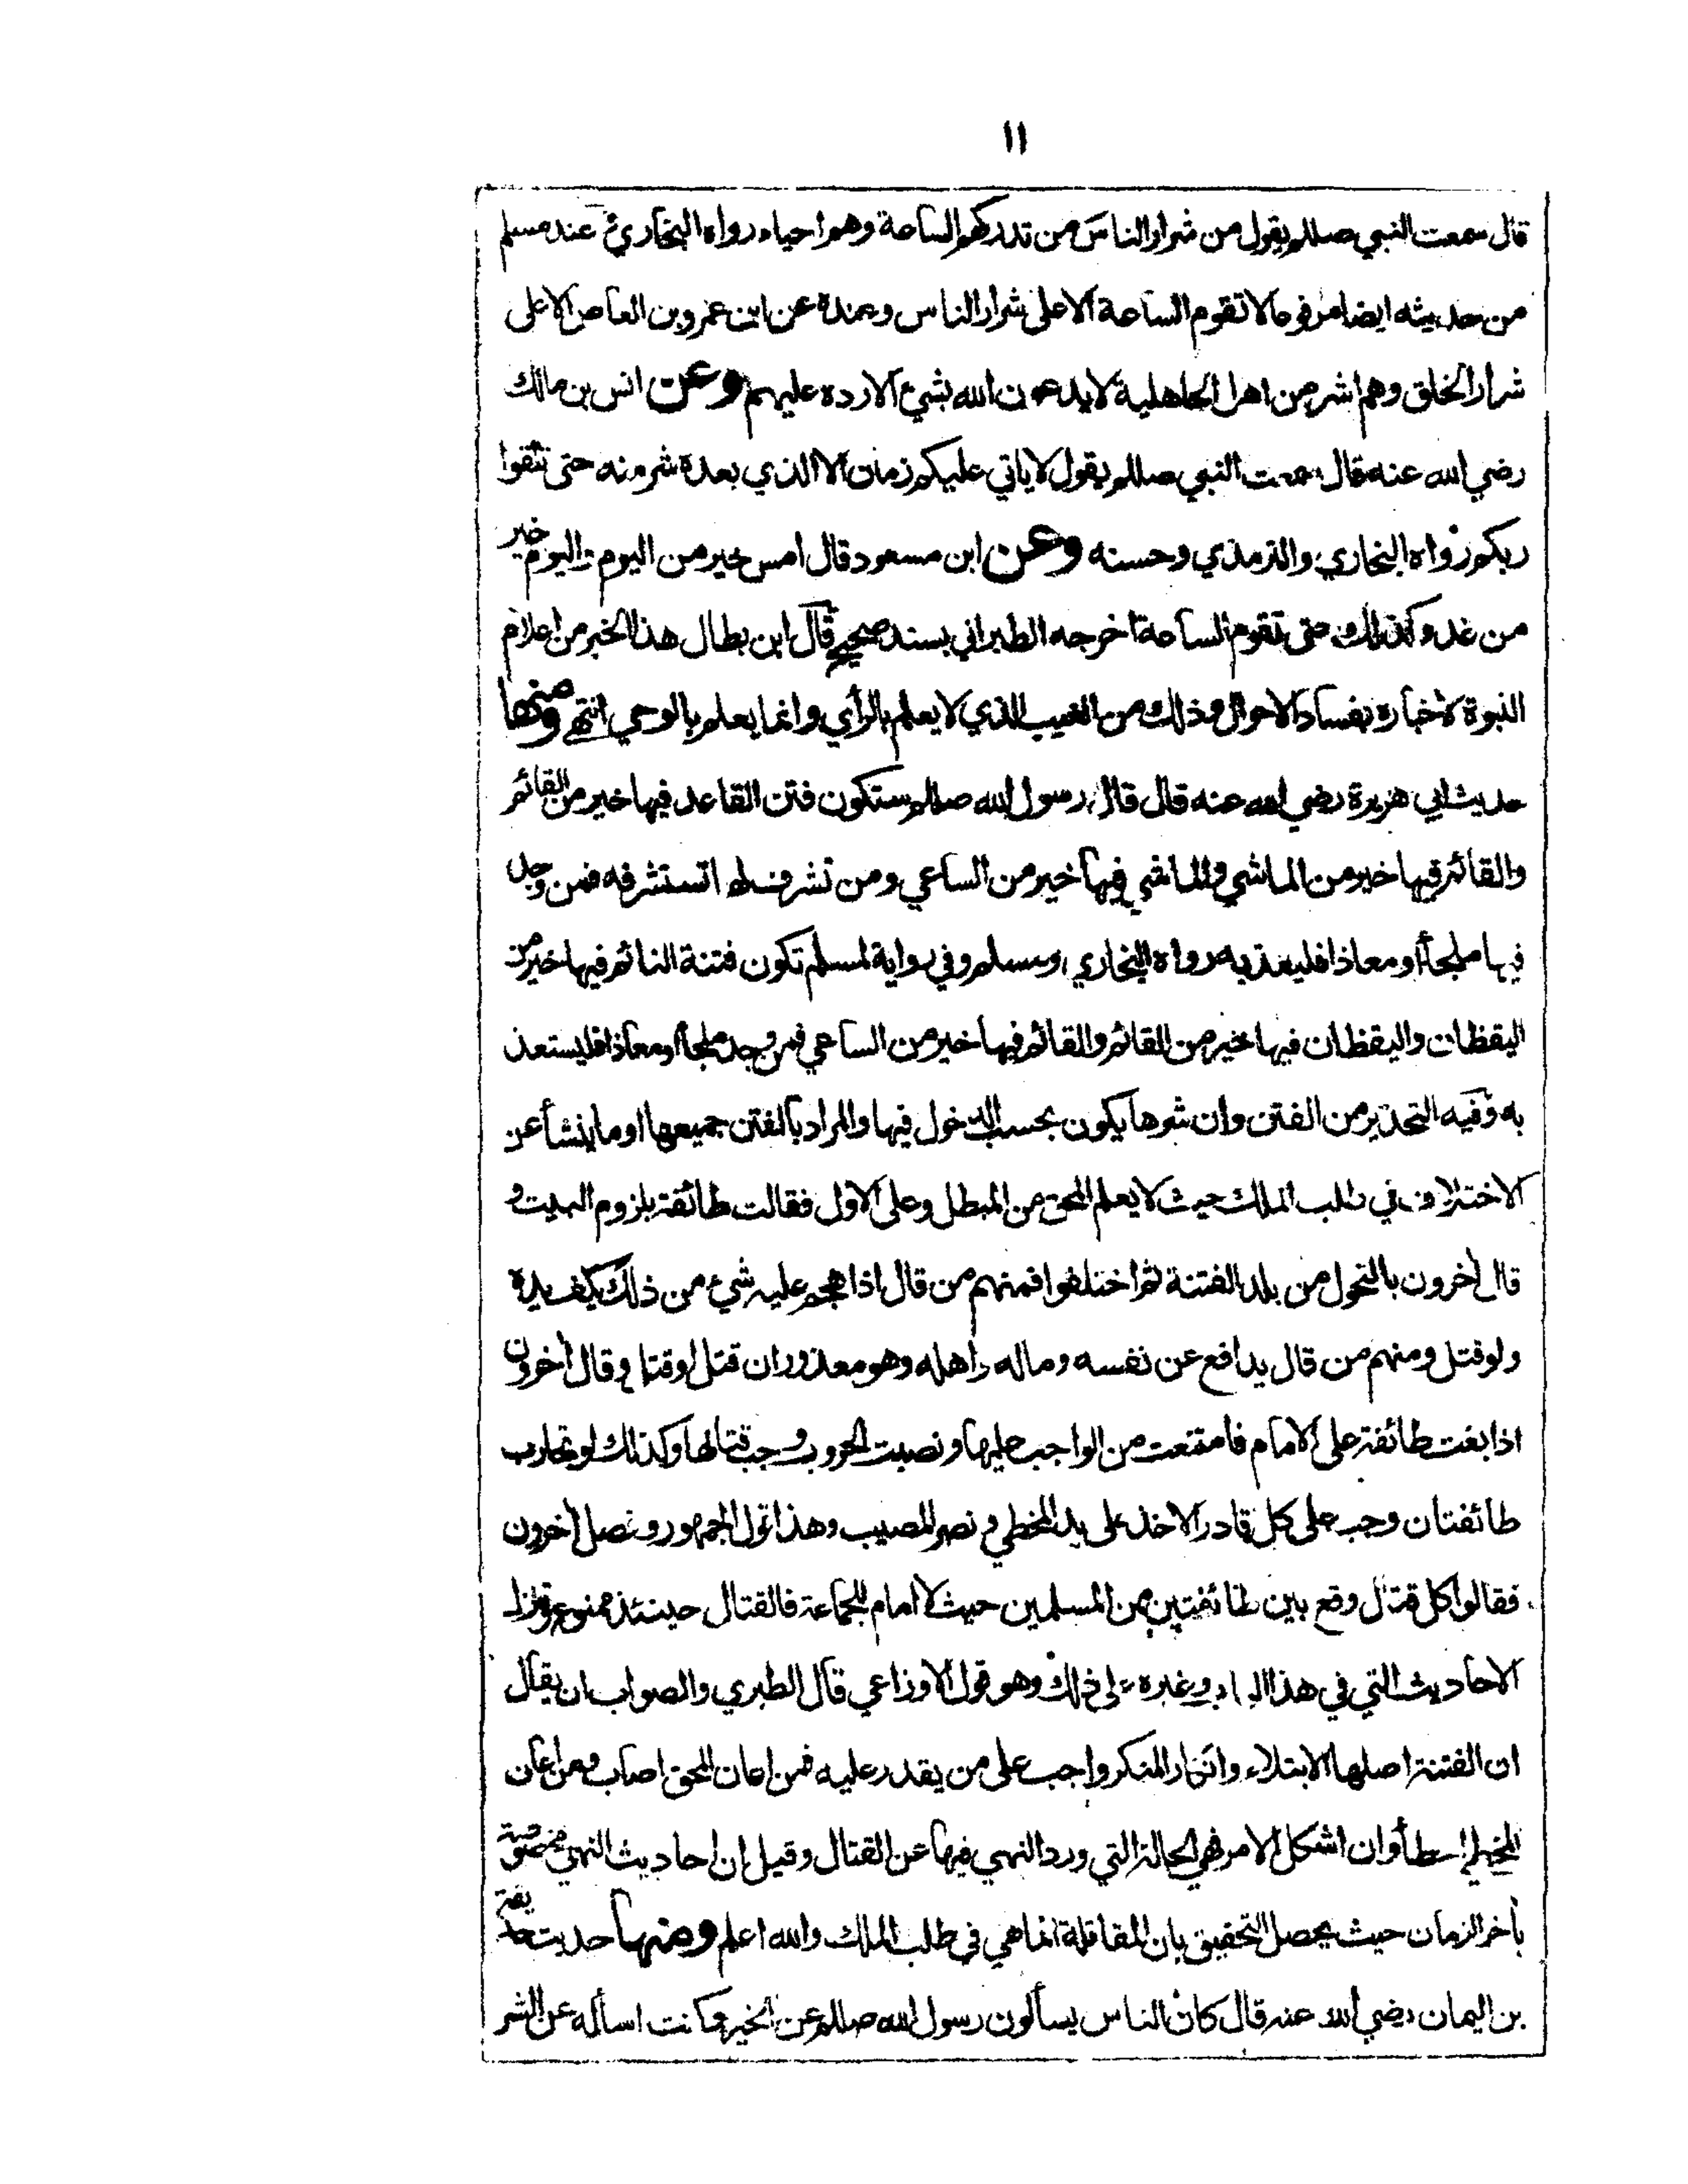 ١١
قال سمعت النبي صللم يقول من شرار الناس من تدركهم الساعة وهم احياء رواه البخاري عند مسلم
من حديثه ايضا مرفوعا لا تقوم الساعة الا على شرار الناس وعنده عن ابن عمرو بن العاص الا على
شرار الخلق وهم اشر من اهل الجاهلية لا يدعون الله بشيء الا رده عليهم وعن انس بن مالك
رضي الله عنه قال سمعت النبي صللم يقول لا ياتي عليكم زمان الا الذي بعده شر منه حتى تلقوا
ربكم رواه البخاري والترمذي وحسنه وعن ابن مسعود قال امس خير من اليوم واليوم خير
من غد وكذلك حتى تقوم الساعة اخرجه الطبراني بسند صحيح قال ابن بطال هذا الخبر من اعلام
النبوة لاخباره بفساد الاحوال وذلك من الغيب الذي لا يعلم بالرأي وانما يعلم بالوحي انتهى ومنها
حديث ابي هريرة رضي الله عنه قال قال رسول الله صللم ستكون فتن القاعد فيها خير من القائم
والقائم فيها خير من الماشي والماشي فيها خير من الساعي ومن تشرف لها تستشرفه فمن وجد
فيها ملجأ او معاذا فليعذ به رواه البخاري ومسلم وفي رواية لمسلم تكون فتنة النائم فيها خير من
اليقظان واليقظان فيها خير من القائم والقائم فيها خير من الساعي فمن وجد ملجأ او معاذا فليستعذ
به وفيه التحذير من الفتن وان شرها يكون بحسب الدخول فيها والمراد بالفتن جميعها او ما ينشأ عن
الاختلاف في طلب الملك حيث لا يعلم المحق من المبطل وعلى الاول فقالت طائفة بلزوم البيت و
قال اخرون بالتحول من بلد الفتنة ثم اختلفوا فمنهم من قال اذا هجم عليه شيء من ذلك يكف يده
ولو قتل ومنهم من قال يدافع عن نفسه وماله واهله وهو معذور ان قتل او قتل وقال اخرون
اذا بغت طائفة على الامام فامتنعت من الواجب عليها ونصبت الحروب وجب قتالها وكذلك لو تحارب
طائفتان وجب على كل قادر الاخذ على يد المخطي ونصر المصيب وهذا قول الجمهور وفصل اخرون
فقالوا كل قتال وقع بين طائفتين من المسلمين حيث لا امام للجماعة فالقتال حينئذ ممنوع وتنزل
الاحاديث التي في هذا الباب وغيره على ذلك وهو قول الاوزاعي قال الطبري والصواب ان يقال
ان الفتنة اصلها الابتلاء وانكار المنكر واجب على من يقدر عليه فمن اعان المحق اصاب ومن اعان
المخطي اخطأ وان اشكل الامر فهي الحالة التي ورد النهي فيها عن القتال وقيل ان احاديث النهي مخصوصة
بأخر الزمان حيث يحصل التحقيق بان المقاتلة انما هي في طلب الملك والله اعلم ومنها حديث حذيفة
بن اليمان رضي الله عنه قال كان الناس يسألون رسول الله صللم عن الخير وكنت اسأله عن الشر